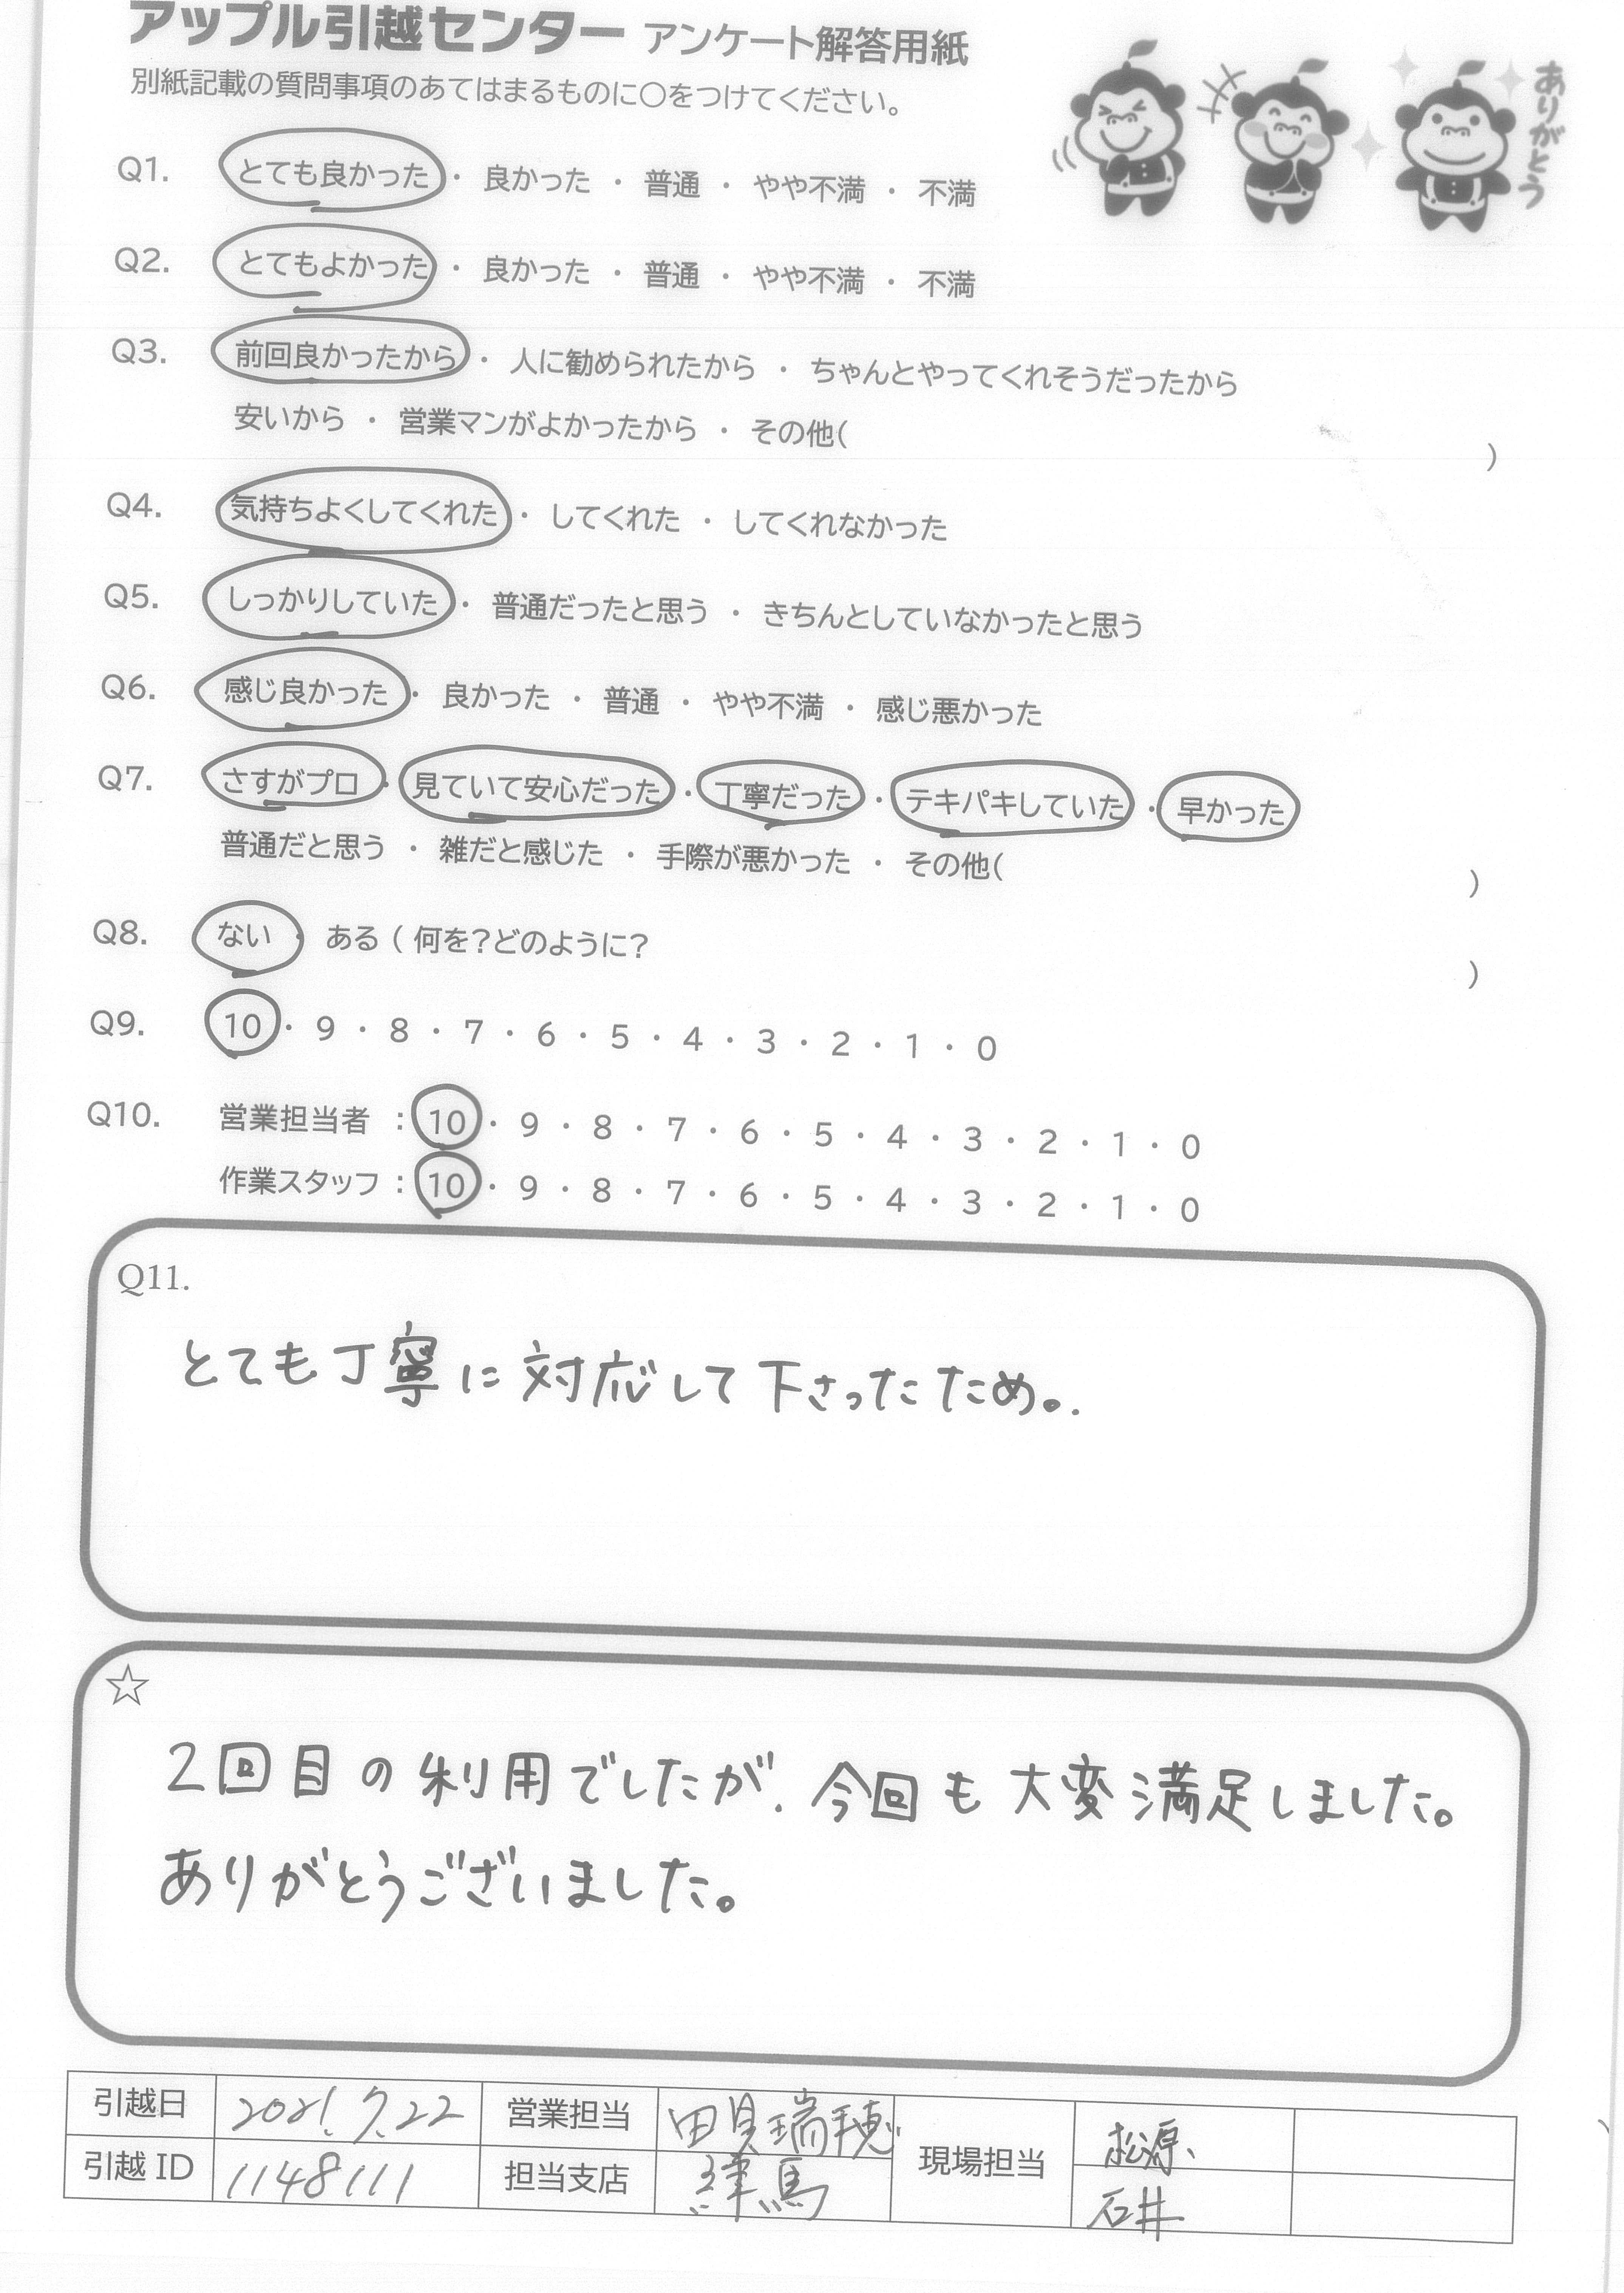 アップル引越センター アンケート解答用紙
別紙記載の質問事項のあてはまるものに〇をつけてください。
ありがとう
Q1. とても良かった ・ 良かった ・ 普通 ・ やや不満 ・ 不満
Q2. とてもよかった ・ 良かった ・ 普通 ・ やや不満 ・ 不満
Q3. 前回良かったから ・ 人に勧められたから ・ ちゃんとやってくれそうだったから
安いから ・ 営業マンがよかったから ・ その他( )
Q4. 気持ちよくしてくれた ・ してくれた ・ してくれなかった
Q5. しっかりしていた ・ 普通だったと思う ・ きちんとしていなかったと思う
Q6. 感じ良かった ・ 良かった ・ 普通 ・ やや不満 ・ 感じ悪かった
Q7. さすがプロ ・ 見ていて安心だった ・ 丁寧だった ・ テキパキしていた ・ 早かった
普通だと思う ・ 雑だと感じた ・ 手際が悪かった ・ その他( )
Q8. ない ・ ある ( 何を?どのように? )
Q9. 10 ・ 9 ・ 8 ・ 7 ・ 6 ・ 5 ・ 4 ・ 3 ・ 2 ・ 1 ・ 0
Q10. 営業担当者 : 10 ・ 9 ・ 8 ・ 7 ・ 6 ・ 5 ・ 4 ・ 3 ・ 2 ・ 1 ・ 0
作業スタッフ : 10 ・ 9 ・ 8 ・ 7 ・ 6 ・ 5 ・ 4 ・ 3 ・ 2 ・ 1 ・ 0
Q11.
とても丁寧に対応して下さったため。
☆
2回目の利用でしたが、今回も大変満足しました。
ありがとうございました。
引越日 2021.7.22 営業担当 瑞穂 現場担当 松原
引越ID 1148111 担当支店 練馬 石井